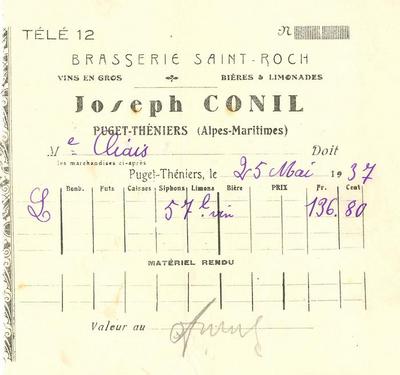 TÉLÉ 12 N
BRASSERIE SAINT-ROCH
VINS EN GROS BIÈRES & LIMONADES
Joseph CONIL
PUGET-THÉNIERS (Alpes-Maritimes)
Me Cliais Doit
les marchandises ci-après
Puget-Théniers, le 25 Mai 1937
Bonb. Futs Caisses Siphons Limona Bière PRIX Fr. Cent
L 57 l. vin 136.80
MATÉRIEL RENDU
Valeur au